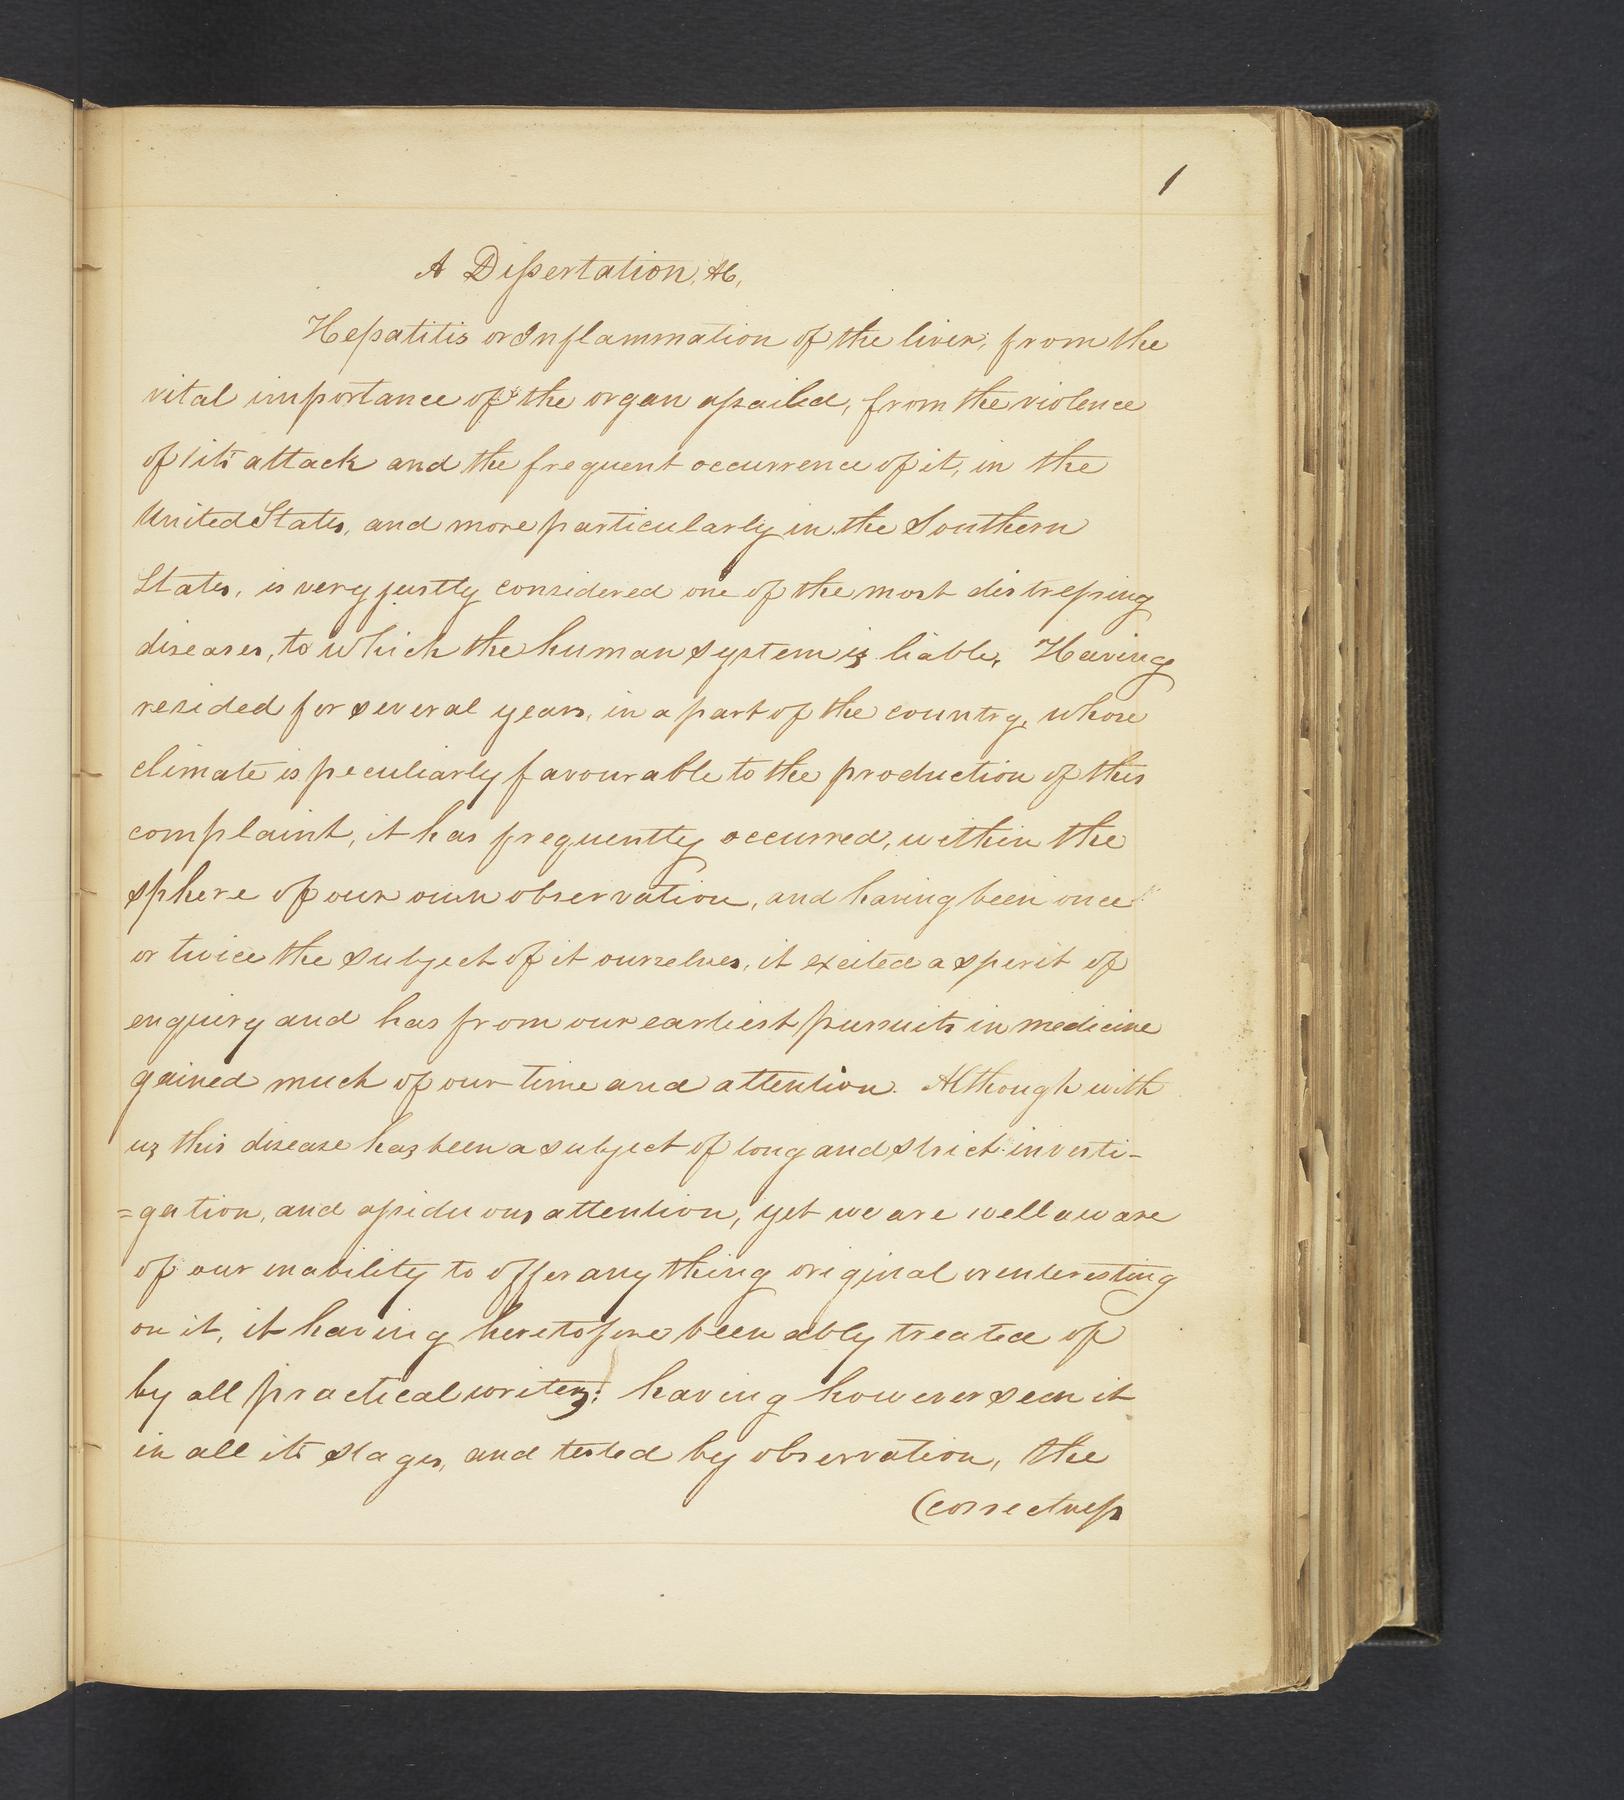 1
A Dissertation, &c,
Hepatitis or Inflammation of the liver, from the
vital importance of the organ assailed, from the violence
of its attack and the frequent occurrence of it, in the
United States, and more particularly in the Southern
States, is very justly considered one of the most distressing
diseases, to which the human system is liable. Having
resided for several years, in a part of the country, whose
climate is peculiarly favourable to the production of this
complaint, it has frequently occurred, within the
sphere of our own observation, and having been once
or twice the subject of it ourselves, it excited a spirit of
enquiry and has from our earliest pursuits in medicine
gained much of our time and attention. Although with
us this disease has been a subject of long and strict investi-
=gation, and assiduous attention, yet we are well aware
of our inability to offer any thing original or interesting
on it, it having heretofore been ably treated of
by all practical writers; having however seen it
in all its stages, and tested by observation, the
(correctness